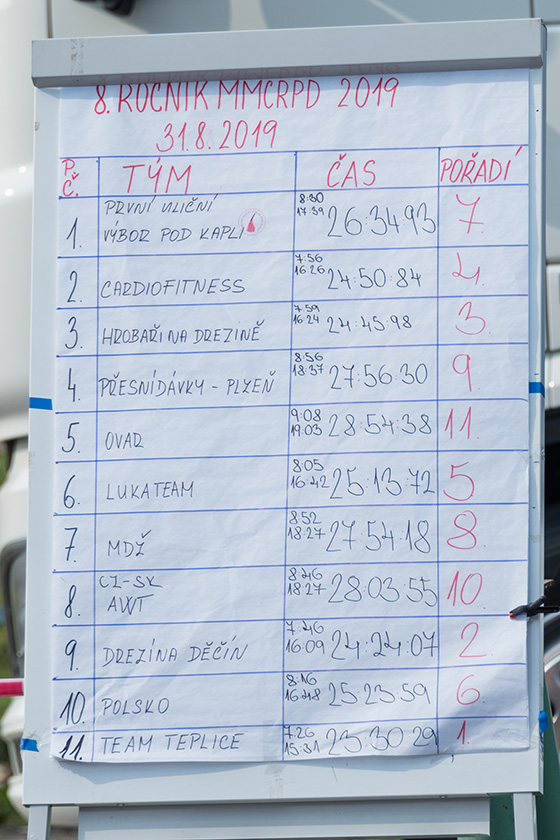 8. ROČNÍK MMČRPD 2019
31.8.2019
P. Č. TÝM ČAS POŘADÍ
1. PRVNÍ ULIČNÍ VÝBOR POD KAPLÍ 8:30 17:39 26:34:93 7.
2. CARDIOFITNESS 7:56 16:26 24:50:84 4.
3. HROBAŘI NA DREZINĚ 7:59 16:24 24:45:98 3.
4. PŘESNÍDÁVKY - PLZEŇ 8:56 18:37 27:56:30 9.
5. OVAD 9:08 19:03 28:54:38 11.
6. LUKATEAM 8:05 16:42 25:13:72 5.
7. MDŽ 8:52 18:27 27:54:18 8.
8. CZ-SK AWT 8:46 18:27 28:03:55 10.
9. DREZÍNA DĚČÍN 7:46 16:09 24:24:07 2.
10. POLSKO 8:16 16:48 25:23:59 6.
11. TEAM TEPLICE 7:26 15:31 23:30:29 1.